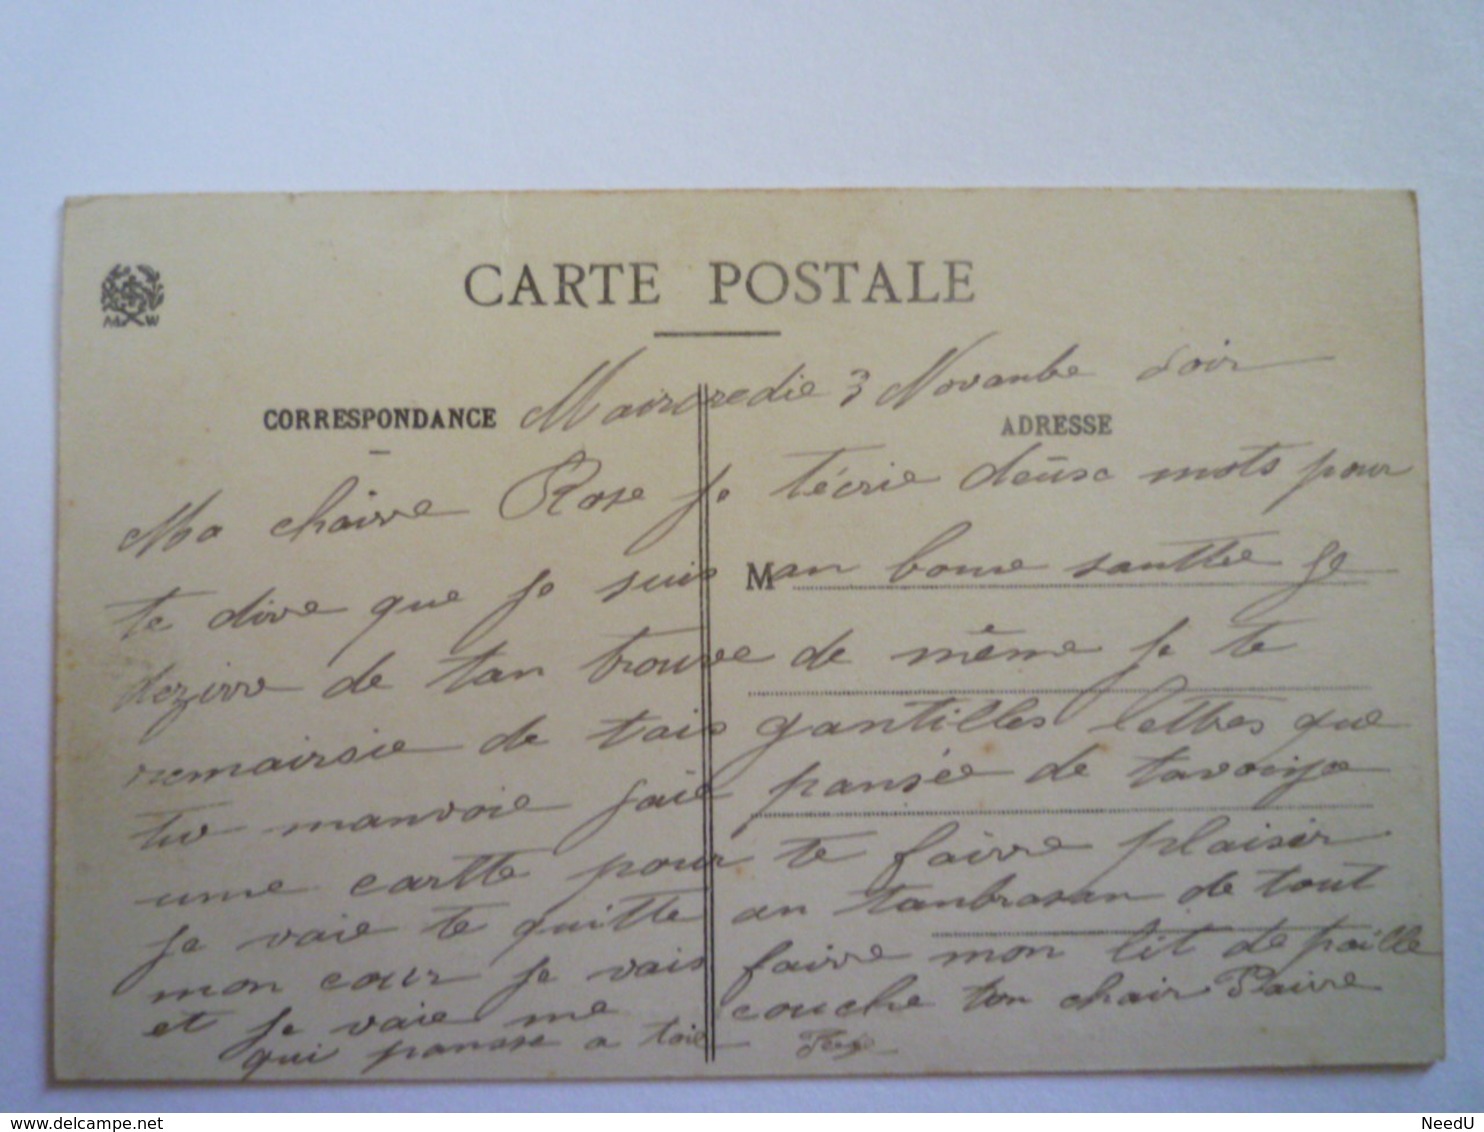 CARTE POSTALE
M W
CORRESPONDANCE
ADRESSE
Maircredie 3 Novanbe Soir
Ma chairre Rose je técrie deuse mots pour
te dire que je suis Man bonne santtée je
dezirre de tan trouve de même je te
remairsie de tais gantilles lettres que
tu manvoie jaie pansée de tavoije
une cartte pour te fairre plaisir
je vaie te quitte an tanbrasan de tout
mon cour je vais fairre mon lit de paille
et je vaie me couche ton chair Paire
qui pansse a toie
NeedU
www.delcampe.net